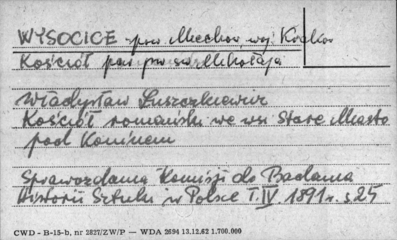 WYSOCICE pow Miechów, woj. Kraków
Kościół par. pw św. Mikołaja
Władysław Łuszczkiewicz
Kościół romański we wsi Stare Miasto
pod Koninem
Sprawozdania Komisji do Badania
Historii Sztuki w Polsce T. IV 1891 r. s 25
CWD - B-15-b, nr 2827/ZW/P — WDA 2694 13.12.62 1.700.000